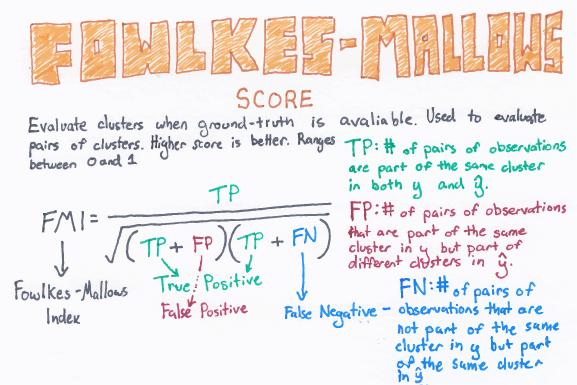 FOWLKES-MALLOWS
SCORE
Evaluate clusters when ground-truth is avaliable. Used to evaluate
pairs of clusters. Higher score is better. Ranges
between 0 and 1
FMI = TP / √(TP + FP)(TP + FN)
Fowlkes-Mallows
Index
True Positive
False Positive
False Negative -
TP: # of pairs of observations
are part of the same cluster
in both y and ŷ.
FP: # of pairs of observations
that are part of the same
cluster in y but part of
different clusters in ŷ.
FN: # of pairs of
observations that are
not part of the same
cluster in y but part
of the same cluster
in ŷ